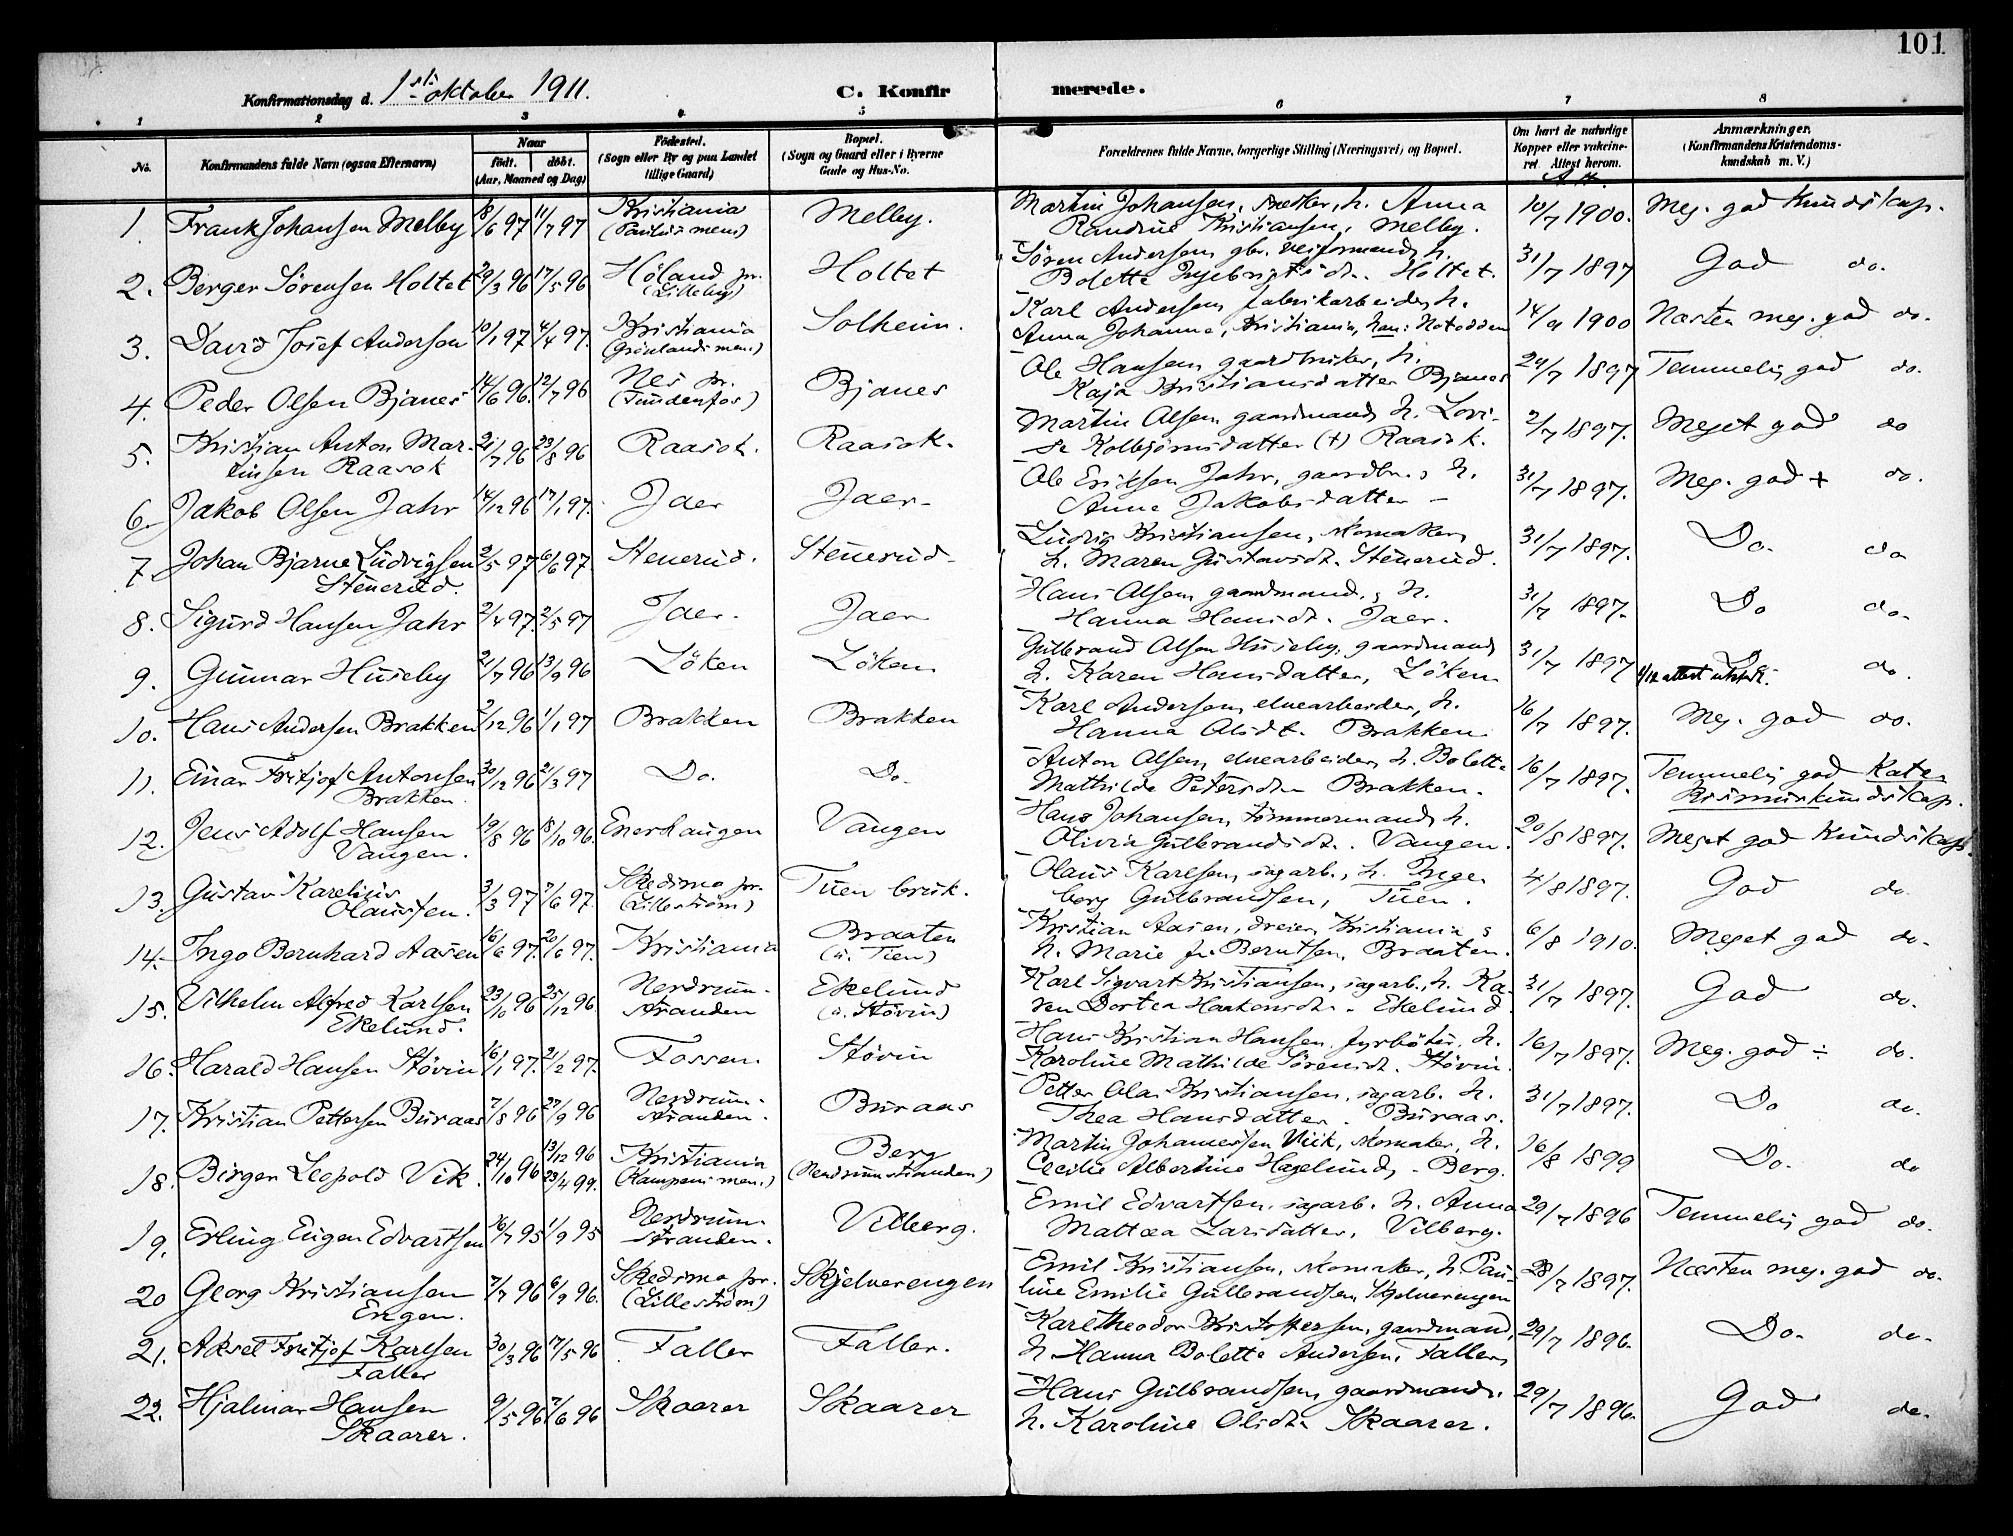 101
Konfirmationsdag d. 1ste oktober 1911.
C. Konfirmerede.
1 2 3 4 5 6 7 8
No.
Konfirmandens fulde Navn (ogsaa Efternavn)
Naar
født. døbt.
(Aar, Maaned og Dag)
Födested.
(Sogn eller By og paa Landet
tillige Gaard)
Bopæl.
(Sogn og Gaard eller i Byerne
Gade og Hus-No.
Forældrenes fulde Navne, borgerlige Stilling (Næringsvei) og Bopæl.
Om havt de naturlige
Kopper eller vakcine-
ret. Attest herom.
Anmærkninger.
(Konfirmandens Kristendoms-
kundskab m. V.)
1. Frank Johansen Melby 18/6 97 11/7 97 Kristiania (Paulus men.) Melby. Martin Johansen, h. Anna
Randine Kristiansen, Melby. 10/7 1900. Meg. god Kundskap.
2. Berger Sörensen Holtet 29/3 96 17/5 96 Höland pr. (Lilleby) Holtet Sören Andersen gbr. veiformand, h.
Bolette Ingebrigtsdt. Holtet. 31/7 1897 God do.
3. David Josef Andersen 10/1 97 4/4 97. Kristiania (Grönlands men.) Solheim. Karl Andersen, fabrikarbeider, h.
Anna Johanne, Kristiania, han: Notodden 14/9 1900 Næsten meg. god do.
4. Peder Olsen Bjanes 14/6 96. 12/7 96 Nes pr. (Funnenfos) Bjanes Ole Hansen, gaardbruker, h.
Kaja Kristiansdatter Bjanes 24/7 1897 Temmelig god do.
5. Kristian Anton Mar-
tinsen Raasok 21/7 96 23/8 96 Raasok. Raasok. Martin Olsen gaardmand, h. Lovi-
se Kolbjörnsdatter (+) Raasok. 2/7 1897. Meget god do
6. Jakob Olsen Jahr 14/12 96 17/1 97. Jaer Jaer- Ole Eriksen Jahr, gaardbr., h.
Anne Jakobsdatter - 31/7 1897. Meg. god + do.
7. Johan Bjarne Ludvigsen
Stenerud. 2/5 97 6/6 97. Stenerud. Stenerud- Ludvig Kristiansen, skomaker,
h. Maren Gustavsdt. Stenerud. 31/7 1897. Do. do
8. Sigurd Hansen Jahr 2/4 97. 2/5 97 Jaer. Jaer Hans Olsen gaardmand, h.
Hanna Hansdt. Jaer. 31/7 1897. Do do.
9. Gunnar Huseby 21/7 96 13/9 96 Löken Löken Gulbrand Olsen Huseby, gaardmand
h. Karen Hansdatter, Löken 31/7 1897 Do. do.
attest utstedt.
10. Hans Andersen Brakken 2/12 96 1/1 97 Brakken Brakken Karl Andersen, elvearbeider, h.
Hanna Olsdt. Brakken. 16/7 1897. Meg. god do.
11. Einar Fritjof Antonsen
Brakken. 30/12 96 21/3 97 Do. Do. Anton Olsen, elvearbeider, h. Bolette
Mathilde Petersdtr Brakken. 16/7 1897. Temmelig god Kate-
kismuskundskap.
12. Jens Adolf Hansen
Vangen. 19/8 96 18/10 96. Enerhaugen Vangen Hans Johansen, tömmermand, h.
Olivia Gulbrandsdt. Vangen. 20/8 1897. Meget god Kundskap.
13. Gustav Karelius
Olaussen. 3/3 97 7/6 97. Skedsmo pr. (Lilleström) Tuen bruk. Olaus Karlsen, sagarb., h. Inge-
borg Gulbrandsen, Tuen. 4/8 1897. God do.
14. Ingo Bernhard Aasen 16/6 97. 20/6 97. Kristiania Braaten
(u. Tuen) Kristian Aasen, dreier, Kristiania;
h. Marie f. Berntsen, Braaten. 6/8 1910. Meget god do.
15. Vilhelm Alfred Karlsen
Ekelund. 23/10 96 25/12 96. Nerdrum-
stranden Ekelund
(u. Stövin) Karl Sigvart Kristiansen, sagarb., h. Ka-
ren Dortea Haakonsdt. - Ekelund. 31/7 1897. God do.
16. Harald Hansen Stövin 16/1 97. 21/2 97. Fossen. Stövin Hans Kristian Hansen, fyrböter, h.
Karoline Mathilde Sörensdt. Stövin. 16/7 1897. Meg. god ÷ do.
17. Kristian Pettersen Buraas 7/8 96 27/9 96 Nerdrum-
stranden. Buraas Petter Olai Kristiansen, sagarb. h.
Thea Hansdatter. Buraas. 31/7 1897. Do do.
18. Birger Leopold Vik. 24/10 96 13/12 96
23/4 99. Kristiania
(Kampens men.) Berg
(Nerdrumstranden) Martin Johannessen Viik, skomaker, h.
Cecilie Albertine Hagelund, - Berg. 16/8 1899 Do. do
19. Erling Eugen Edvartsen 16/7 95 1/9 95 Nerdrum-
stranden. Vilberg. Emil Edvartsen, sagarb. h. Anna
Mattea Larsdatter, Vilberg. 29/7 1896 Temmelig god do.
20 Georg Kristiansen
Engen. 7/7 96 6/9 96. Skedsmo pr.
(Lilleström) Skjelverengen Emil Kristiansen, skomaker, h. Pau-
line Emilie Gulbrandsen, Skjelverengen 28/7 1897. Næsten meg. god do.
21. Aksel Fritjof Karlsen
Faller 30/3 96 17/5 96 Faller Faller. Karl Theodor Kristoffersen, gaardmand,
h. Hanna Bolette Andersen, Faller, 29/7 1896. Do. do.
22. Hjalmar Hansen
Skaarer. 9/5 96 7/6 96 Skaarer Skaarer Hans Gulbrandsen, gaardmand.
h. Karoline Olsdt. Skaarer. 29/7 1896. God do.